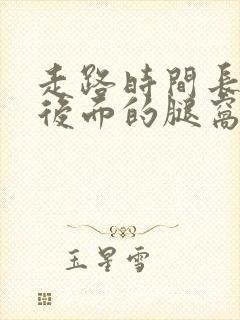 走路時間長
後面的腿窩
玉星雪